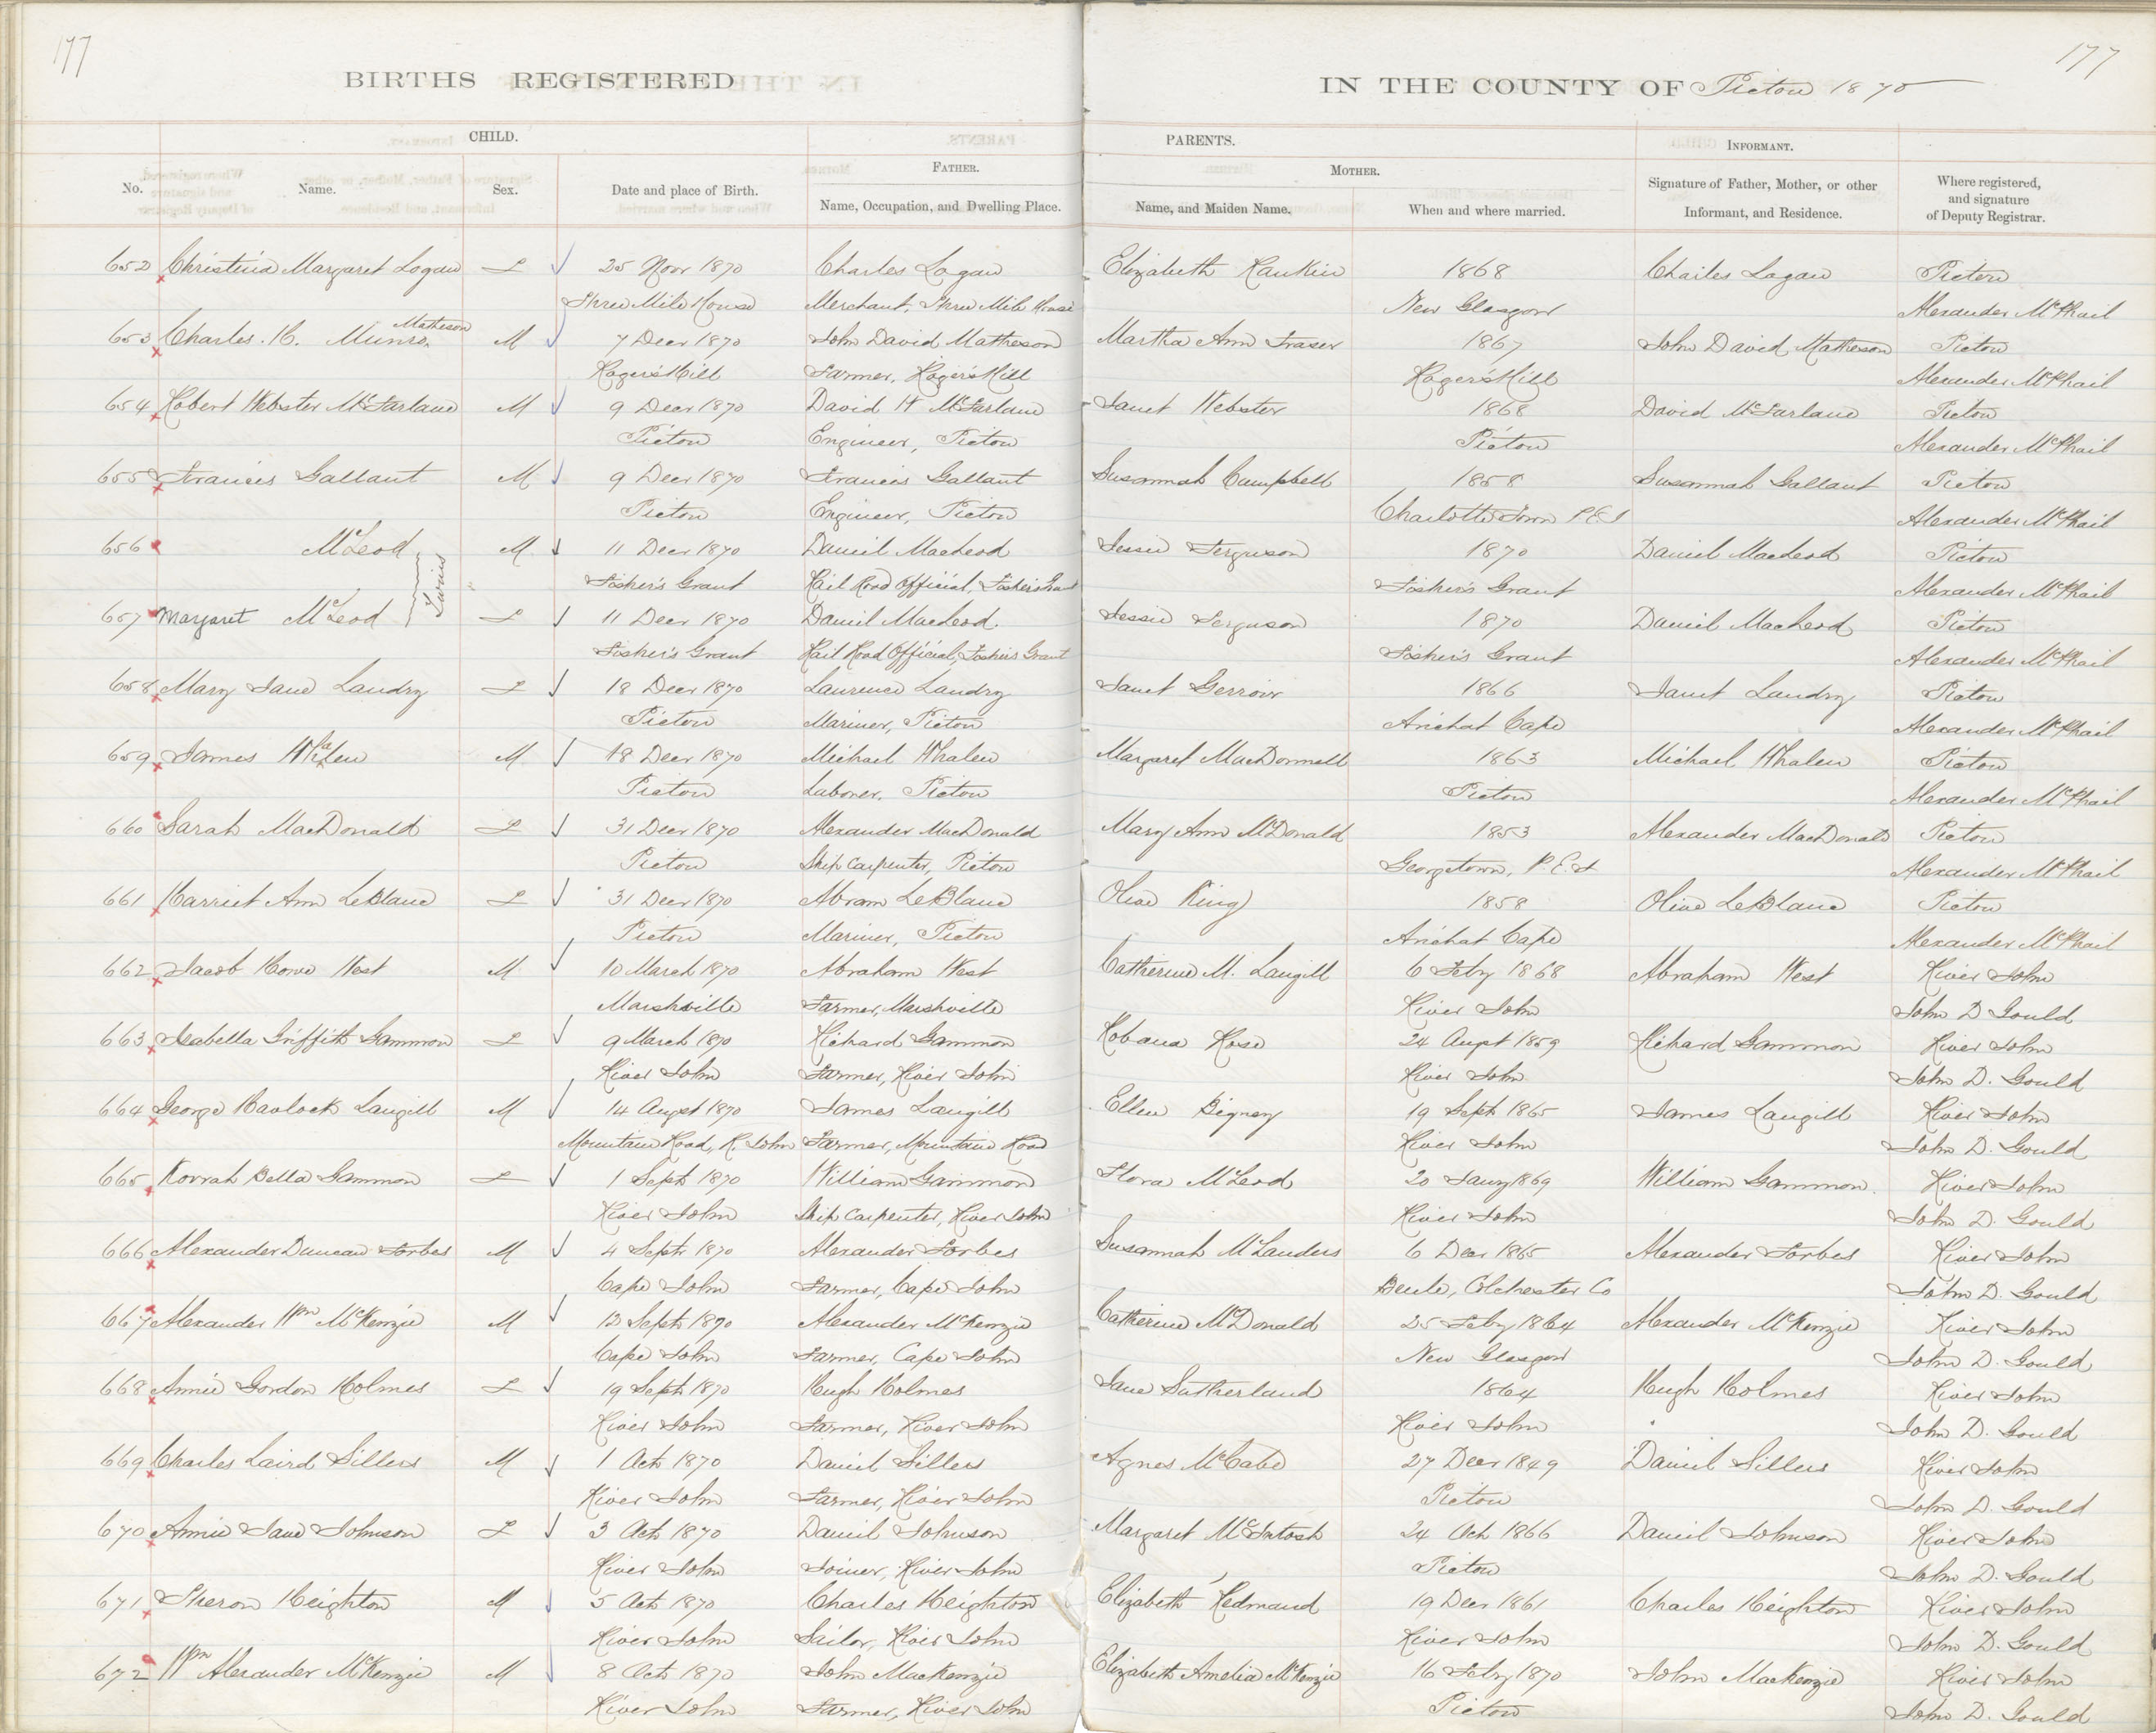 177
177
BIRTHS REGISTERED
IN THE COUNTY OF Pictou 1870
CHILD.
PARENTS.
INFORMANT.
FATHER.
MOTHER.
No. Name. Sex. Date and place of Birth. Name, Occupation, and Dwelling Place. Name, and Maiden Name. When and where married. Signature of Father, Mother, or other Informant, and Residence. Where registered, and signature of Deputy Registrar.
652 Christina Margaret Logan F 25 Novr 1870 Charles Logan Elizabeth Rankin 1868 Charles Logan Pictou
Three Mile House Merchant, Three Mile House New Glasgow Alexander McPhail
Matheson
653 Charles. H. Munro, M 7 Decr 1870 John David Matheson Martha Ann Fraser 1867 John David Matheson Pictou
Roger's Hill Farmer, Roger's Hill Roger's Hill Alexander McPhail
654 Robert Webster McFarlane M 9 Decr 1870 David H McFarlane Janet Webster 1868 David McFarlane Pictou
Pictou Engineer, Pictou Pictou Alexander McPhail
655 Francis Gallant M 9 Decr 1870 Francis Gallant Susannah Campbell 1858 Susannah Gallant Pictou
Pictou Engineer, Pictou Charlotte Town P.E.I Alexander McPhail
656 McLeod M 11 Decr 1870 Daniel MacLeod Jessie Ferguson 1870 Daniel MacLeod Pictou
Twins
Fisher's Grant Rail Road Official, Fisher's Grant Fisher's Grant Alexander McPhail
657 Margaret McLeod F 11 Decr 1870 Daniel MacLeod Jessie Ferguson 1870 Daniel MacLeod Pictou
Fisher's Grant Rail Road Official, Fisher's Grant Fisher's Grant Alexander McPhail
658 Mary Jane Landry F 18 Decr 1870 Laurence Landry Janet Gerroir 1866 Janet Landry Pictou
Pictou Mariner, Pictou Arichat Cape Alexander McPhail
659 James Whalen M 18 Decr 1870 Michael Whalen Margaret MacDonnell 1863 Michael Whalen Pictou
Pictou Laborer, Pictou Pictou Alexander McPhail
660 Sarah MacDonald F 31 Decr 1870 Alexander MacDonald Mary Ann McDonald 1853 Alexander MacDonald Pictou
Pictou Ship Carpenter, Pictou Georgetown, P.E.I Alexander McPhail
661 Harriet Ann LeBlanc F 31 Decr 1870 Abram LeBlanc Olive King 1858 Olive LeBlanc Pictou
Pictou Mariner, Pictou Arichat Cape Alexander McPhail
662 Jacob Howe West M 10 March 1870 Abraham West Catherine M. Langill 6 Feby 1868 Abraham West River John
Marshville Farmer, Marshville River John John D Gould
663 Isabella Griffith Gammon F 9 March 1870 Richard Gammon Robana Rose 24 Augst 1859 Richard Gammon River John
River John Farmer, River John River John John D. Gould
664 George Havlock Langill M 14 Augst 1870 James Langill Ellen Bigney 19 Sept 1865 James Langill River John
Mountain Road, R. John Farmer, Mountain Road River John John D. Gould
665 Norrah Bella Gammon F 1 Sept 1870 William Gammon Flora McLeod 20 Jany 1869 William Gammon River John
River John Ship Carpenter, River John River John John D. Gould
666 Alexander Duncan Forbes M 4 Sept 1870 Alexander Forbes Susannah McLanders 6 Decr 1865 Alexander Forbes River John
Cape John Farmer, Cape John Colchester Co John D. Gould
667 Alexander Wm McKenzie M 12 Sept 1870 Alexander McKenzie Catherine McDonald 25 Feby 1864 Alexander McKenzie River John
Cape John Farmer, Cape John New Glasgow John D. Gould
668 Annie Gordon Holmes F 19 Sept 1870 Hugh Holmes Jane Sutherland 1864 Hugh Holmes River John
River John Farmer, River John River John John D. Gould
669 Charles Laird Sillers M 1 Oct 1870 Daniel Sillers Agnes McCabe 27 Decr 1849 Daniel Sillers River John
River John Farmer, River John Pictou John D. Gould
670 Annie Jane Johnson F 3 Oct 1870 Daniel Johnson Margaret McIntosh 24 Oct 1866 Daniel Johnson River John
River John Joiner, River John Pictou John D. Gould
671 Theron Heighton M 5 Oct 1870 Charles Heighton Elizabeth Redmand 19 Decr 1861 Charles Heighton River John
River John Sailor, River John River John John D. Gould
672 Wm Alexander McKenzie M 8 Oct 1870 John MacKenzie Elizabeth Amelia McKenzie 16 Feby 1870 John MacKenzie River John
River John Farmer, River John Pictou John D. Gould